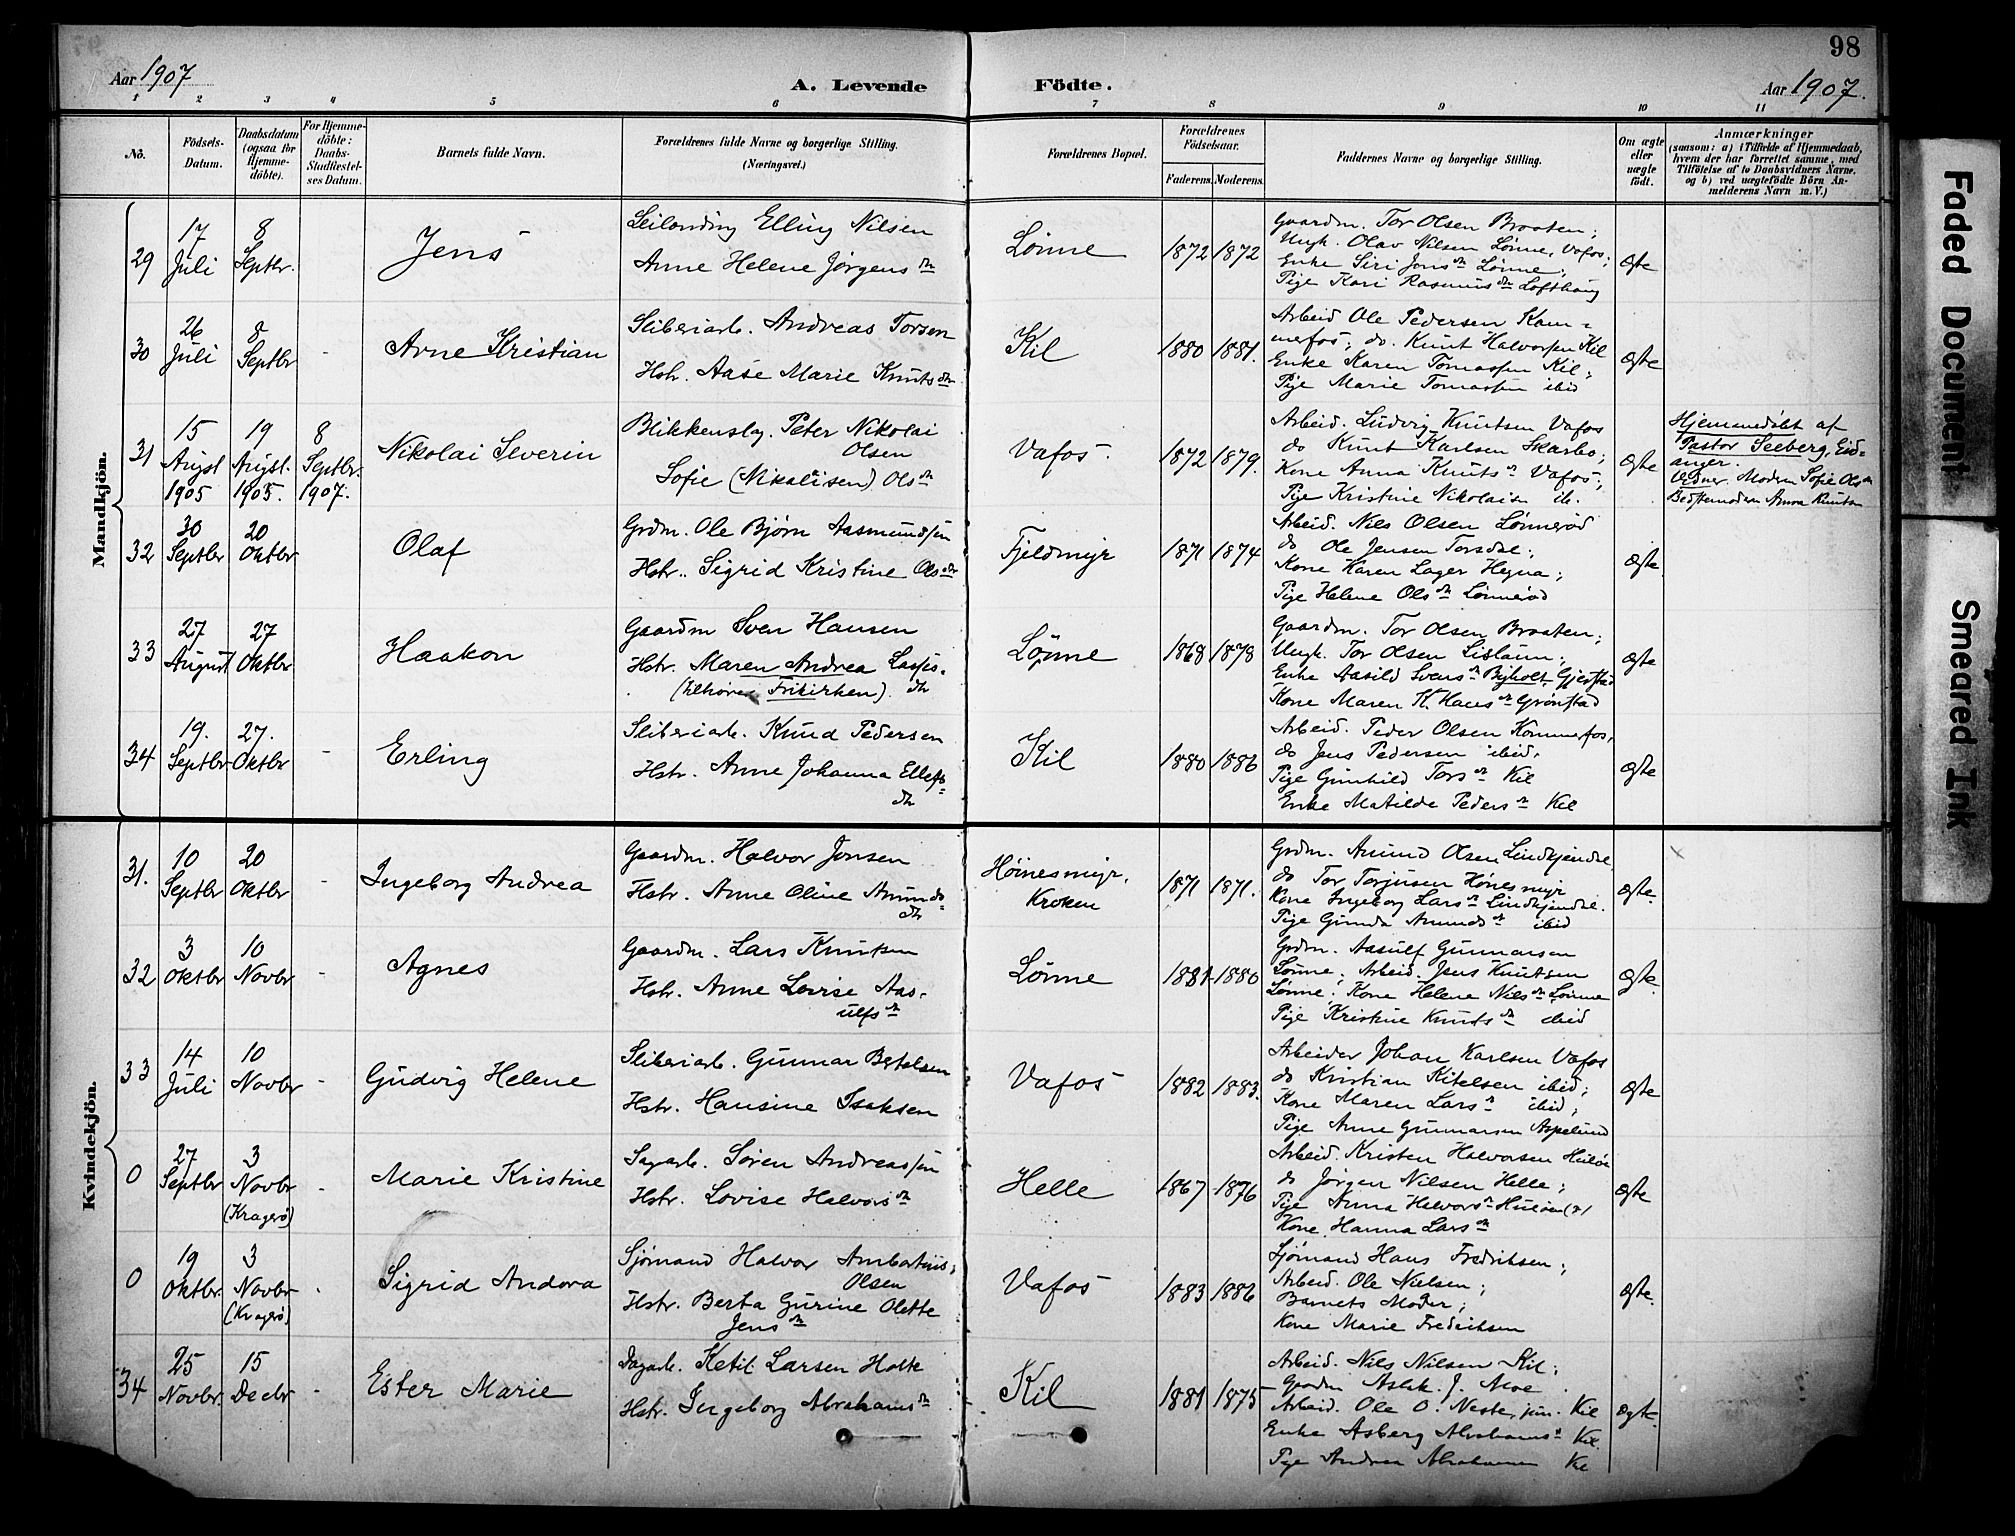 98
Aar 1907
A. Levende
Födte.
Aar 1907.
1 2 3 4 5 6 7 8 9 10 11
No.
Födsels-
Datum.
Daabsdatum
(ogsaa for
Hjemme-
döbte).
For Hjemme-
döbte:
Daabs-
Stadfæstel-
ses Datum.
Barnets fulde Navn.
Forældrenes fulde Navne og borgerlige Stilling.
(Næringsvei.)
Forældrenes Bopæl.
Forældrenes
Födselsaar.
Faderens. Moderens.
Faddernes Navne og borgerlige Stilling.
Om ægte
eller
uægte
födt.
Anmærkninger
(saasom: a) i Tilfælde af Hjemmedaab,
hvem der har forrettet samme, med
Tilföielse af to Daabsvidners Navne,
og b) ved uægtefödte Börn An-
melderens Navn m. V.)
Mandkjön.
29
17
Juli
8
Septbr.
Jens
Elling Nilsen
Anne Helene Jørgens dtr
Lønne
1872 1872
Gaardm. Tor Olsen Braaten;
Ungk. Olav Nilsen Lønne, Vafos;
Enke Siri Jons dtr Lønne;
Pige Kari Rasmus dtr Lofthaug
Ægte
30
26
Juli
8
Septbr
-
Arne Kristian
Sliberiarb. Andreas Torsen
Hstr. Aase Marie Knuts dtr
Kil
1880 1881.
Arbeid Ole Pedersen Kam-
merfos; do. Knut Halvorsen Kil
Enke Karen Tomassen Kil;
Pige Marie Tomassen ibid
Ægte
31
15
Augst
1905
19
Augst.
1905.
8
Septbr.
1907.
Nikolai Severin
Blikkenslag. Peter Nikolai
Olsen
Sofie (Nikolaisen) Ols dtr
Vafos.
1872 1879.
Arbeid. Ludvig Knutsen Vafos
do Knut Karlsen Skarbo;
Kone Anna Knuts dtr Vafos;
Pige Kristine Nikolaisen ib.
Ægte
Hjemmedøbt af
Pastor Seeberg, Eid-
anger.
Vidner. Modern Sofie Ols dtr
Bedstemodern Anna Knutsen
32
30
Septbr
20
Oktbr
Olaf
Grdm. Ole Bjørn Aasmundsen
Hstr. Sigrid Kristine Ols dtr
Fjeldmyr
1871 1874
Arbeid. Nils Olsen Lønnerød
do Ole Jensen Torsdal;
Kone Karen Lager Hegna;
Pige Helene Ols dtr Lønnerød
Ægte
33
27
August
27
Oktbr
Haakon
Gaardm Sven Hansen
Hstr. Maren Andrea Lassis-
(tilhører Frikirken). dtr
Lønne
1868 1878
Gaardm. Tor Olsen Braaten;
Ungk. Tor Olsen Lislaun;
Enke Aasild Svens dtr Byholt, Gjerstad
Kone Maren K. Hans dtr Grønstad
Ægte
34
19.
Septbr
27.
Oktbr
-
Erling
Sliberiarb. Knud Pedersen
Hstr. Anne Johanna Ellefs-
dtr
Kil
1880 1886
Arbeid. Peder Olsen Kammerfos,
do Jens Pedersen ibid,
Pige Gunhild Tors dtr Kil
Enke Matilde Peders dtr Kil
Ægte
Kvindekjön.
31.
10
Septbr
20
Oktbr
Ingeborg Andrea
Gaardm. Halvor Jonsen
Hstr. Anne Oline Amunds-
dtr
Høinesmyr,
Kroken
1871 1871.
Grdm. Amund Olsen Lindkjendal
do Tor Torjusen Hønesmyr
Kone Ingeborg Lars dtr Lindkjendal.
Pige Gunda Amunds dtr ibid
Ægte.
32
3
Oktbr
10
Novbr
-
Agnes
Gaardm. Lars Knutsen
Hstr. Anne Lovise Aas-
ulfs dtr
Lønne
1881 1880
Grdm. Aasulf Gunnarsen
Lønne; Arbeid. Jens Knutsen
Lønne; Kone Helene Nils dtr Lønne
Pige Kristine Knuts dtr ibid
Ægte.
33
14
Juli
10
Novbr
-
Gudvig Helene
Sliberiarb. Gunnar Bertelsen
Hstr. Hansine Isaksen
Vafos
1882 1883.
Arbeider Johan Karlsen Vafos
do Kristian Kitelsen ibid;
Kone Maren Lars dtr ibid;
Pige Anne Gunnarsen Aspelund
Ægte
0
27
Septbr
3
Novbr
(Kragerø)
-
Marie Kristine
Sagarb. Søren Andreassen
Hstr. Lovise Halvors dtr
Helle
1867 1876
Arbeid. Kristen Halvorsen
do Jørgen Nilsen Helle;
Pige Anna Halvors dtr
Kone Hanna Lars dtr
Ægte
0
19
Oktbr.
3
Novbr
(Kragerø)
Sigrid Andora
Sjømand Halvor Ambortius
Olsen
Hstr. Berta Gurine Olette
Jens dtr
Vafos
1883 1886
Sjømand Hans Fredriksen;
Arbeid. Ole Nielsen;
Barnets Moder;
Kone Marie Fredriksen
Ægte.
34
25
Novbr.
15
Decbr
-
Ester Marie
Dagarb. Ketil Larsen Holte
Hstr. Ingeborg Abrahams dtr
Kil
1881 1875
Arbeid. Nils Nilsen Kil;
Gaardm Aslak J. Moe
Arbeid. Ole O. Neste, jun. Kil
Enke Asberg Abrahams dtr Kil.
Pige Andrea Abrahamsen Kil
Ægte.
Faded Document
Smeared Ink